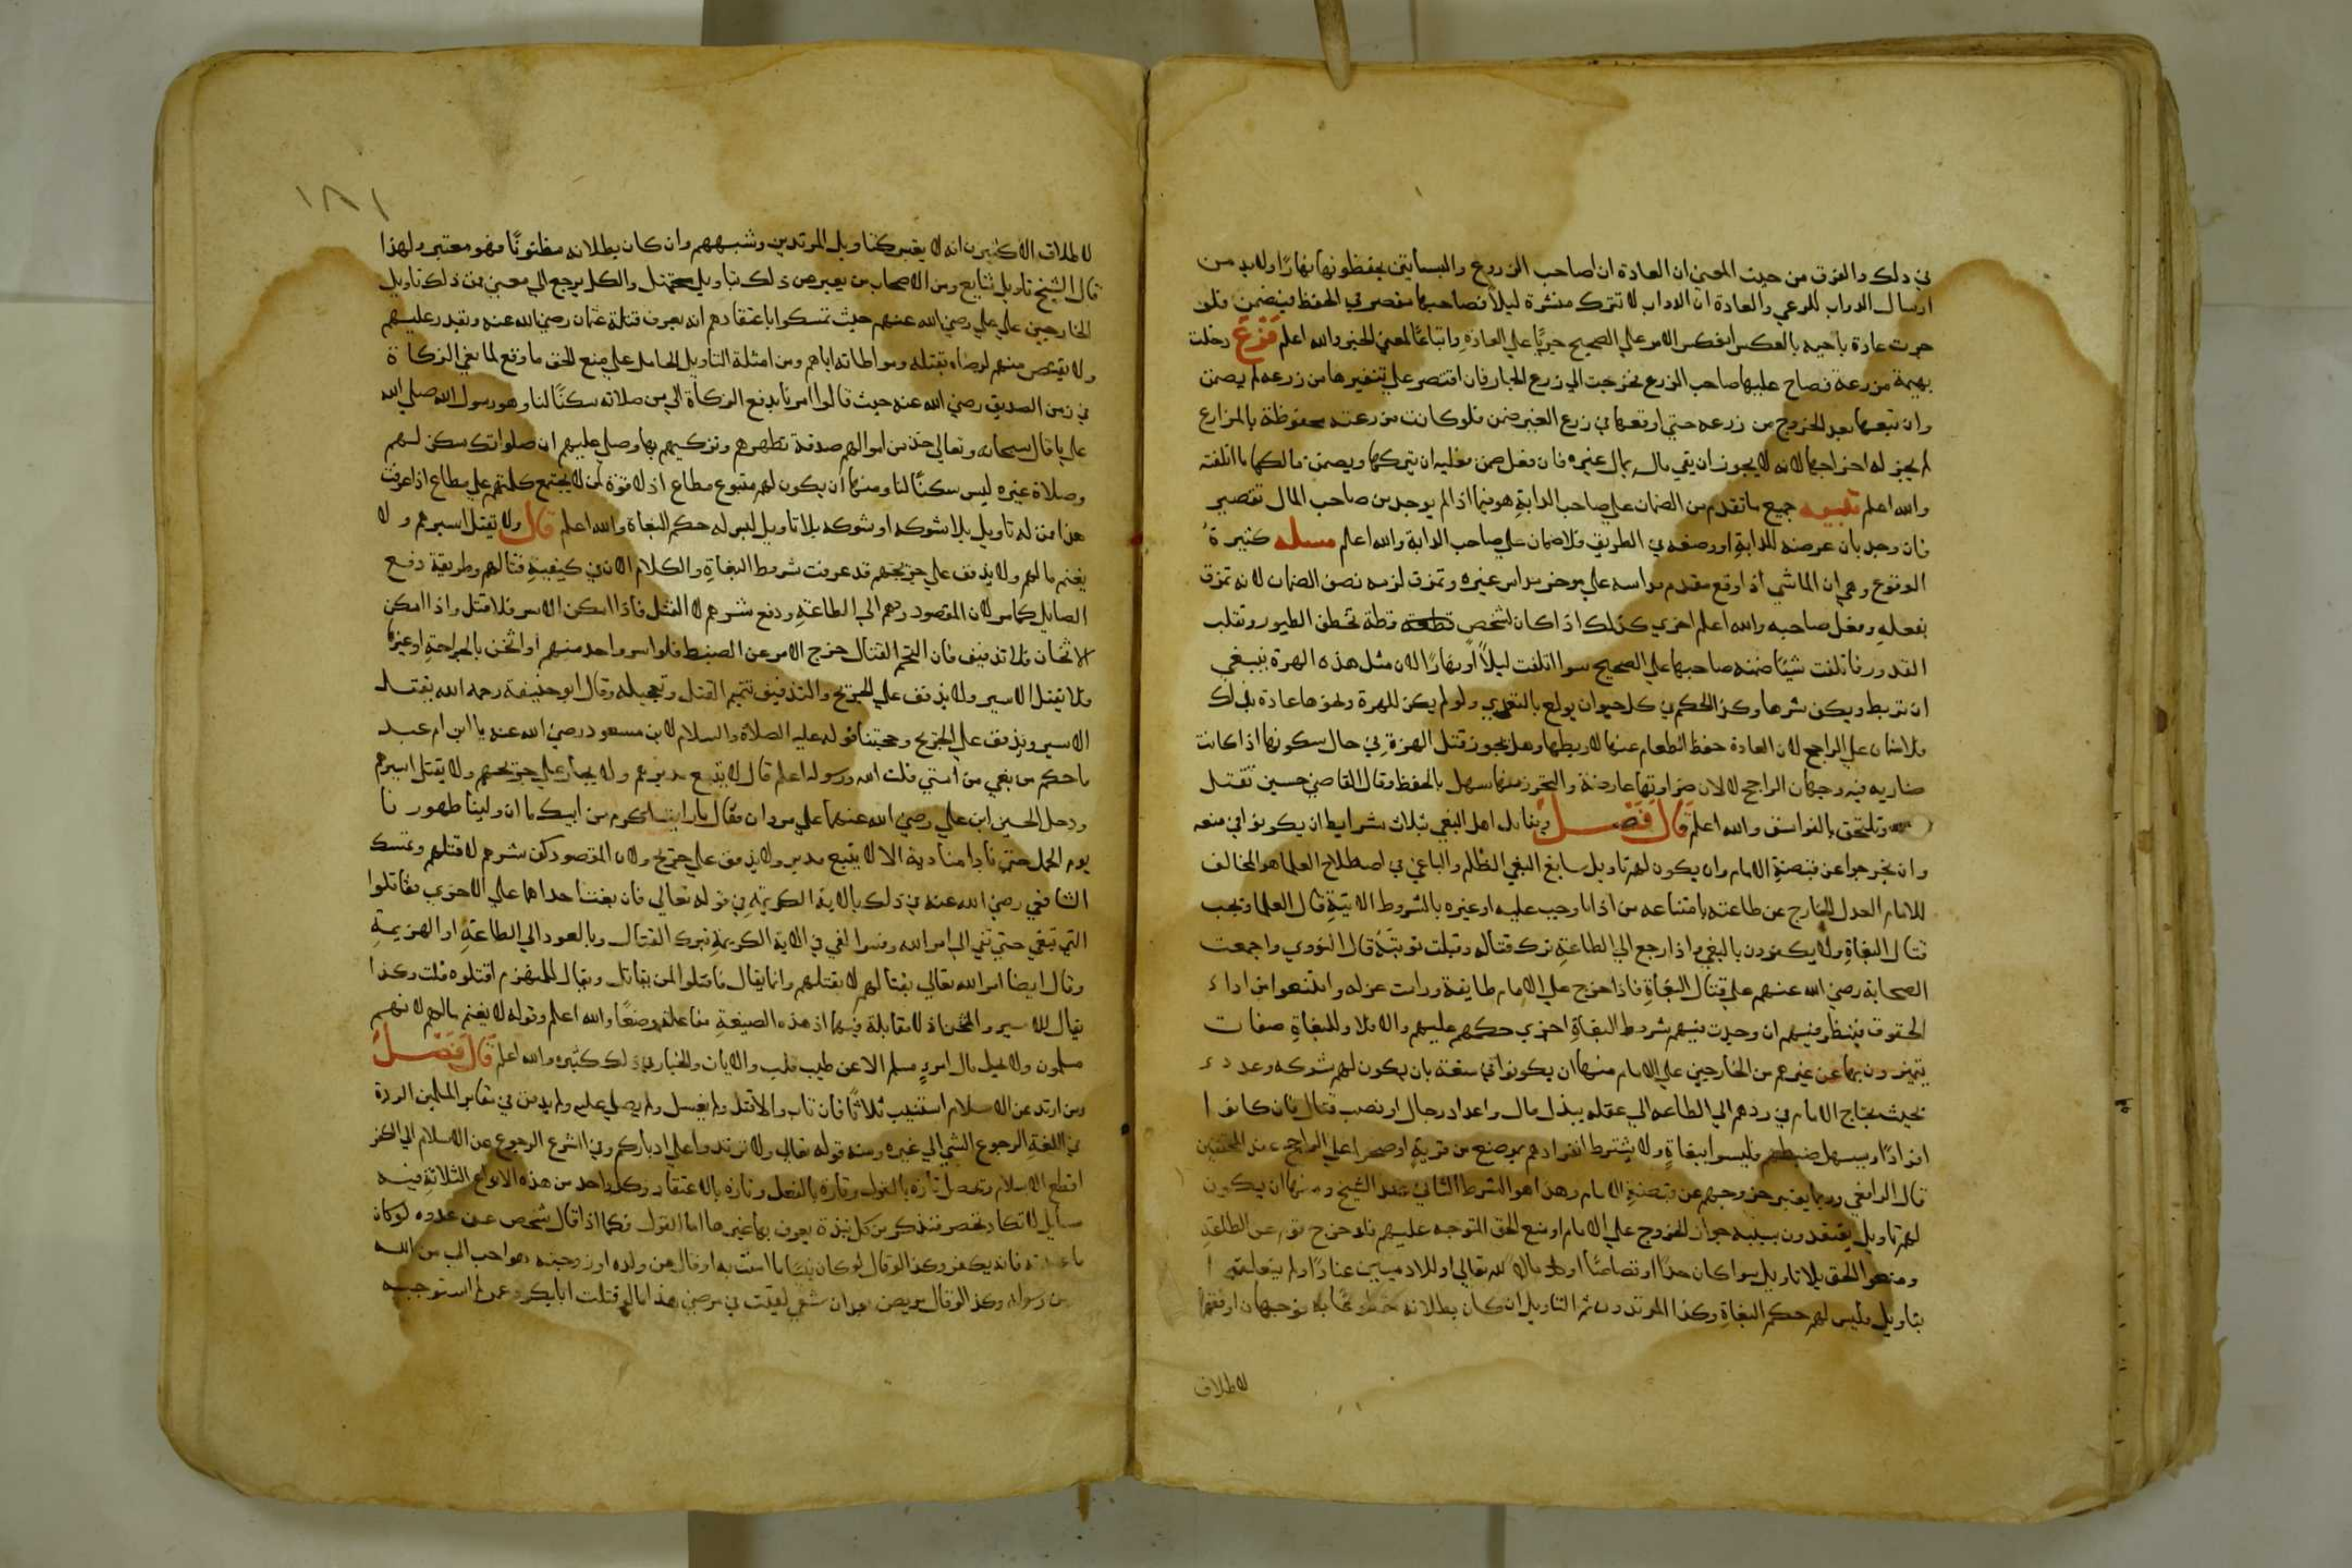 في ذلك والفرق من حيث المعنى ان العادة ان اصاحب الزروع والبساتين يحفظونها نهارًا ولابد من
ارسال الدواب للرعي والعادة ان الدواب لا تترك منشرة ليلاً فصاحبها مقصر في الحفظ فيضمن فلو
جرت عادة ناحيه بالعكس انعكس الامر علي الصحيح جريًا علي العادة واتباعًا لمعني الخبر والله اعلم فَرْعٌ دخلت
بهيمة مزرعة فصاح عليها صاحب الزرع فخرجت الي زرع الجار فان اقتصر علي تنفيرها من زرعه لم يضمن
وان تبعها بعد الخروج من زرعه حتي اوقعها في زرع الغير ضمن فلو كانت مزرعته محفوظة بالمزارع
لم يجز له اخراجها لانه لا يجوز ان يقي ماله بمال غيره فان فعل ضمن فعليه ان يتركها ويضمن مالكها ما اتلفته
والله اعلم تنبيه جميع ما تقدم من الضمان علي صاحب الدابةِ هو فيما اذا لم يوجد من صاحب المال تقصير
فان وجد بان عرضه للدابةِ او وضعه في الطريق فلا ضمان علي صاحب الدابة والله اعلم مسلة كثيرةُ
الوقوع وهي ان الماشي اذا وقع مقدم مداسه علي موخر مداس غيره وتمزق لزمه نصف الضمان لانه تمزق
بفعلهِ وفعل صاحبه والله اعلم اخري كذلك اذا كان لشخصٍ قطعة قطة تخطف الطيور وتقلب
القدور فاتلفت شيئا ضمنه صاحبها علي الصحيح سوا اتلفت ليلاً او نهارًا لان مثل هذه الهرة ينبغي
ان تربط ويكف شرها وكذا الحكم في كل حيوان يولع بالتعدي ولو لم يكن للهرة ونحوها عادة بذلك
فلا ضمان علي الراجح لان العادة حفظ الطعام عنها لا ربطها وهل يجوز قتل الهرة في حال سكونها اذا كانت
ضاريه فيه وجهان الراجح لا لان ضراوتها عارضة والتحرز منها سهل بالحفظ وقال القاضي حسين تقتل
وتلتحق بالفواسق والله اعلم قَالَ فَصْلٌ ويقاتل اهل البغي بثلاث شرايط ان يكونوا في منعه
وان يخرجوا عن قبضةِ الامام وان يكون لهم تاويل سايغ البغي الظلم والباغي في اصطلاح العلما هو المخالف
للامام العدل الخارج عن طاعته بامتناعه من اداما وجب عليه او غيره بالشروط الاتيةِ قال العلما ويجب
قتال البغاةِ ولا يكفرون بالبغي واذا رجع الي الطاعةِ ترك قتاله وقبلت توبته قال النووي واجمعت
الصحابة رضي الله عنهم علي قتال البغاةِ فاذا خرج علي الامام طايفة ورامت عزله وامتنعوا من اداء
الحقوق فينظر فيهم ان وجدت فيهم شروط البغاةِ اجري حكمهم عليهم والا فلا وللبغاةِ صفات
يتميزون بها عن غيرهم من الخارجين علي الامام منها ان يكونوا في منعة بان يكون لهم شوكه وعدد
بحيث يحتاج الامام في ردهم الي الطاعه الي عقله ببذل مال واعداد رجال او نصب قتال فان كانوا
افرادًا ويسهل ضبطهم فليسوا ببغاةٍ ولا يشترط انفرادهم بموضع من قريةٍ او صحرا علي الراجح عند المحققين
قال الرافعي وربما يعتبر خروجهم عن قبضةِ الامام وهذا هو الشرط الثاني عند الشيخ ومنها ان يكون
لهم تاويل يعتقدون بسببه جواز الخروج علي الامام او منع الحق المتوجه عليهم فلو خرج قوم عن الطاعةِ
ومنعوا الحق بلا تاويل سوا كان حدًا او قصاصًا او مالا لله تعالي او للادميين عنادًا ولم يتعلقوا
بتاويل فليس لهم حكم البغاةِ وكذا المرتدون ثم التاويل ان كان بطلانه مقطوعًا به فوجهان اوفقهما
لاطلاق
١٨١
لاطلاق الاكثرين انه لا يعتبر كتاويل المرتدين وشبههم وان كان بطلانه مظنونًا فهو معتبر ولهذا
قال الشيخ تاويل سايغ ومن الاصحاب من يعبر عن ذلك بتاويل محتمل والكل يرجع الي معني فمن ذلك تاويل
الخارجين علي علي رضي الله عنهم حيث تمسكوا باعتقادهم انه يعرف قتلة عثمان رضي الله عنه ويقدر عليهم
ولا يقتص منهم لرضاه بقتله ومواطاته اياهم ومن امثلة التاويل الحامل علي منع الحق ما وقع لمانعي الزكاة
في زمن الصديق رضي الله عنه حيث قالوا امرنا بدفع الزكاة الي من صلاته سكنًا لنا وهو رسول الله صلي الله
علي ما قال سبحانه وتعالي خذ من اموالهم صدقة تطهرهم وتزكيهم بها وصل عليهم ان صلواتك سكن لهم
وصلاة غيره ليس سكنًا لنا ومنها ان يكون لهم متبوع مطاع اذ لا قوة لمن لا يجتمع كلمتهم علي مطاع اذا عرفت
هذا فمن له تاويل بلا شوكه او شوكه بلا تاويل ليس له حكم البغاة والله اعلم قال ولا يقتل اسيرهم ولا
يغنم مالهم ولا يذفف علي جريحهم قد عرفت شروط البغاةِ والكلام الان في كيفيةِ قتالهم وطريقة دفع
الصايل كما مر لان المقصود ردهم الي الطاعةِ ودفع شرهم لا القتل فاذا امكن الاسر فلا قتل واذا امكن
الاثخان فلا تذفيف فان التحم القتال خرج الامر عن الضبط فلو اسر واحد منهم او اثخن بالجراحةِ او غيرها
فلا يقتل الاسير ولا يذفف علي الجريح والتذفيف تتميم القتل وتعجيله وقال ابو حنيفة رحمه الله يقتل
الاسير ويذفف علي الجريح وحجتنا قوله عليه الصلاة والسلام لابن مسعود رضي الله عنه يا ابن ام عبد
ما حكم من بغي من امتي قلت الله ورسوله اعلم قال لا يتبع مدبرهم ولا يجاز علي جريحهم ولا يقتل اسيرهم
ودخل الحسين ابن علي رضي الله عنهما علي مروان فقال ما رايت اكرم من ابيك ما ان ولينا ظهورنا
يوم الجمل حتي نادا مناديه الا لا يتبع مدبر ولا يذفف علي جريح ولان المقصود كف شرهم لا قتلهم وتمسك
الشافعي رضي الله عنه في ذلك بالاية الكريمةِ في قوله تعالي فان بغت احداهما علي الاخري فقاتلوا
التي تبغي حتي تفي الي امر الله وفسر الفي في الاية الكريمةِ بترك القتال وبالعود الي الطاعةِ او الهزيمةِ
وقال ايضا امر الله تعالي بقتالهم لا بقتلهم وانما يقال فاقتلوا لمن يقاتل ويقال للمنهزم اقتلوه قلت وكذا
يقال للاسير والمثخن اذ لا مقابلة فيهما اذ هذه الصيغةِ مفاعلة وضعًا والله اعلم وقوله لا يغنم مالهم لانهم
مسلمون ولا يحل مال امريٍ مسلم الا عن طيب قلب والايات والاخبار في ذلك كثيره والله اعلم قَالَ فَصْلٌ
ومن ارتد عن الاسلام استتيب ثلاثًا فان تاب والا قتل ولم يغسل ولم يصلي عليه ولم يدفن في مقابر المسلمين الردة
في اللغةِ الرجوع الشي الي غيره ومنه قوله تعالي ولا ترتدوا علي ادباركم وفي الشرع الرجوع عن الاسلام الي الكفر
اقطع الاسلام وتحصل تارة بالقول وتارة بالفعل وتارة بالاعتقاد وكل واحد من هذه الانواع الثلاثةِ فيه
مسايل لا تكاد تحصر فنذكر من كل نبذة يعرف بها غيرها اما القول فكما اذا قال شخص عن عدوه لو كان
فانه يكفر وكذا لو قال لو كان نبيًا ما امنت به او قال عن ولده او زوجته هو احب الي من الله
من رسوله وكذا لو قال مريض بعد ان شفي لقيت في مرضي هذا ما لو قتلت ابا بكر وعمر لم استوجبه